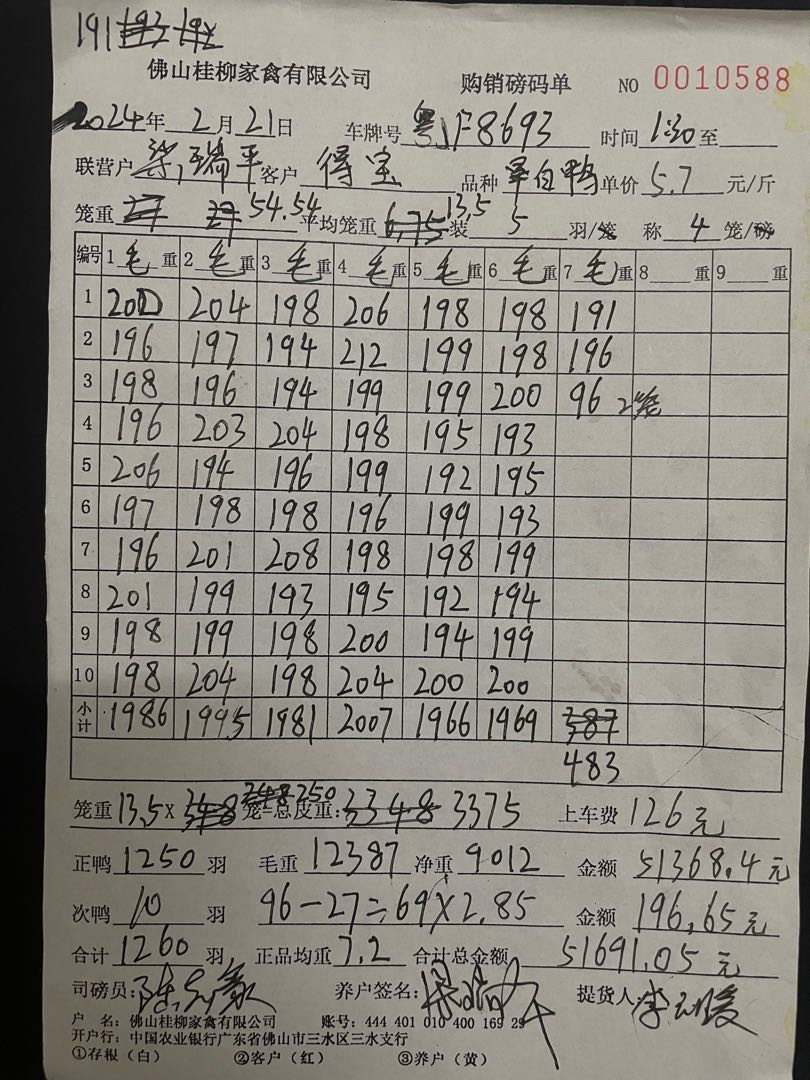 191
佛山桂柳家禽有限公司 购销磅码单 NO 0010588
2024年 2月 21日 车牌号 粤JF8693 时间 1:30 至
联营户 梁瑞平 客户 得宝 品种 单价 5.7 元/斤
笼重 54.54 平均笼重 13.5 装 5 羽/笼 称 4 笼/磅
编号 1 毛 重 2 毛 重 3 毛 重 4 毛 重 5 毛 重 6 毛 重 7 毛 重 8 重 9 重
1 200 204 198 206 198 198 191
2 196 197 194 212 199 198 196
3 198 196 194 199 199 200 96 2笼
4 196 203 204 198 195 193
5 206 194 196 199 192 195
6 197 198 198 196 199 193
7 196 201 208 198 198 199
8 201 199 193 195 192 194
9 198 199 198 200 194 199
10 198 204 198 204 200 200
小计 1986 1995 1981 2007 1966 1969 387
483
笼重 13.5 X 250 笼=总皮重: 3348 3375 上车费 126元
正鸭 1250 羽 毛重 12387 净重 9012 金额 51368.4元
次鸭 10 羽 96-27=69X2.85 金额 196.65元
合计 1260 羽, 正品均重 7.2 合计总金额 51691.05 元
司磅员: 养户签名: 提货人:
户 名: 佛山桂柳家禽有限公司 账号: 444 401 010 400 169 29
开户行: 中国农业银行广东省佛山市三水区三水支行
①存根(白) ②客户(红) ③养户(黄)